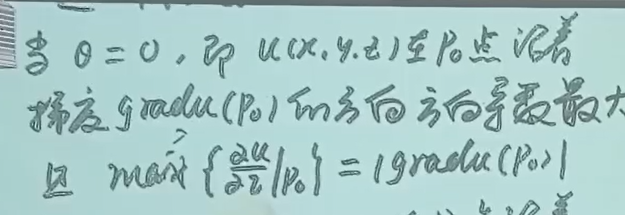 当 θ=0，即 u(x,y,z)在P₀点沿着
梯度gradu(P₀)的方向方向导数最大
且 max{∂u/∂l|P₀}=|gradu(P₀)|